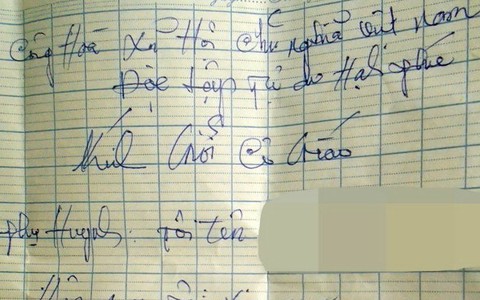 Cộng Hoà Xã Hội Chủ nghĩa Việt Nam
Độc lập Tự do Hạnh phúc
Kính Gửi Cô Giáo
phụ Huynh: tôi tên